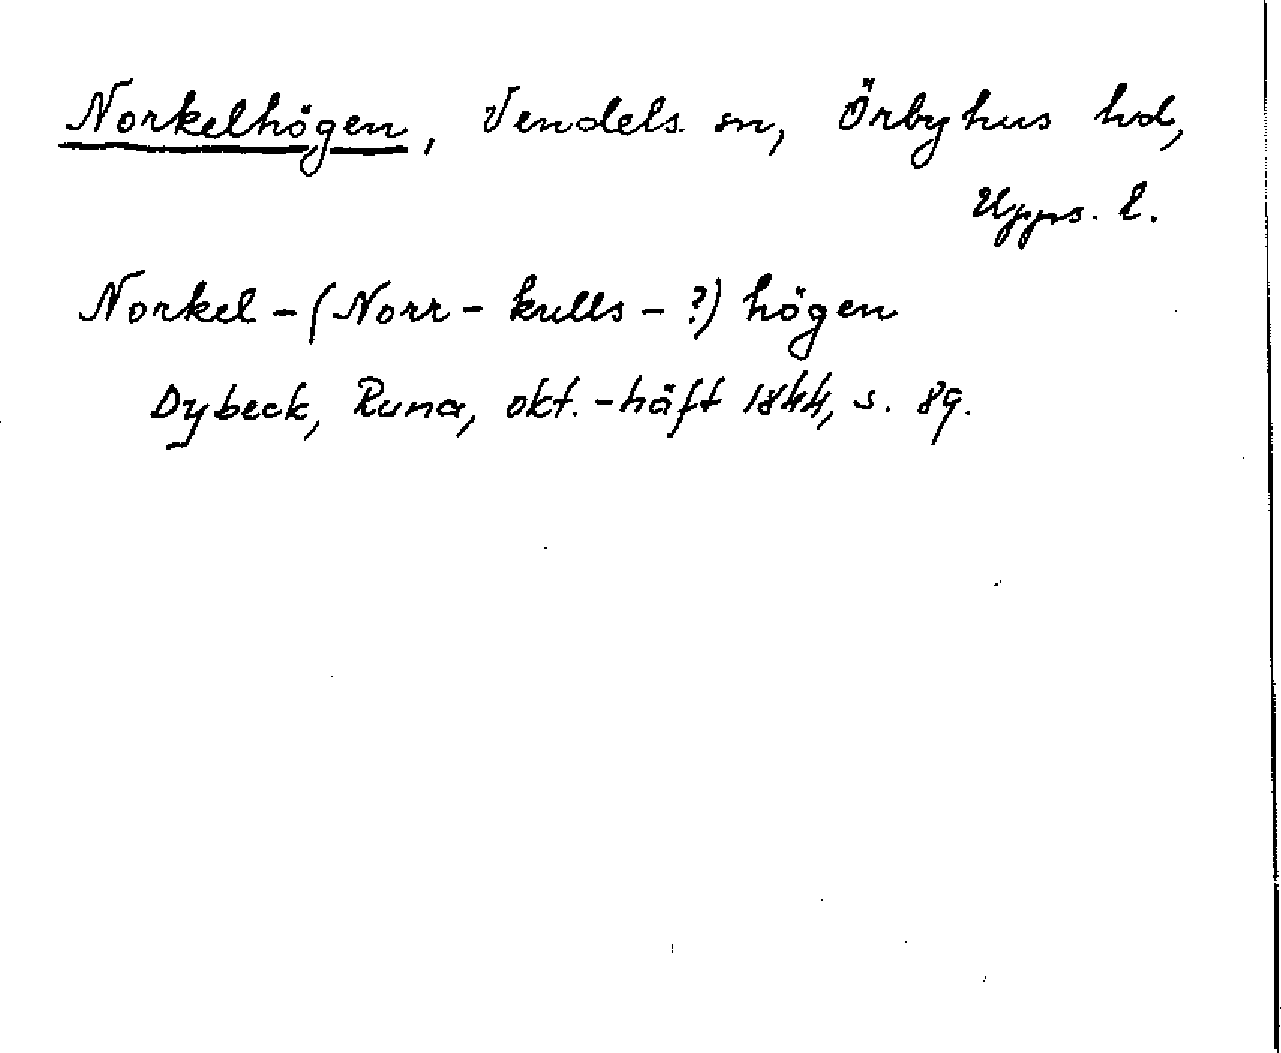 Norkelhögen, Vendels sn, Örbyhus hd,
Upps. l.
Norkel-(Norr-kulls-?) högen
Dybeck, Runa, okt.-häft 1844, s. 89.